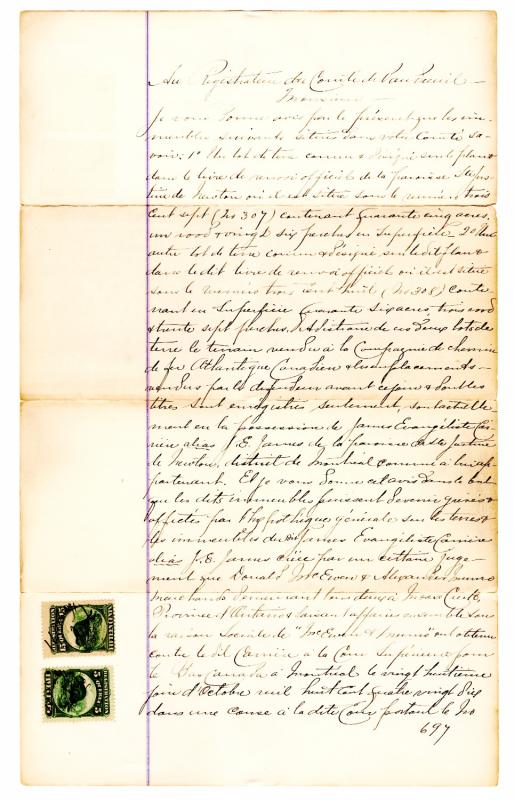 Au Registrateur du Comté de Vaudreuil —
Monsieur
Je vous donne avis par le présent que les im-
meubles suivants situés dans votre Comté sa-
voir: 1° Un lot de terre connu & désigné sur le plan &
dans le livre de renvoi officiel de la paroisse Ste Jus-
tine de Newton où il est situé sous le numéro trois
cent sept (No 307) contenant quarante cinq acres,
un rood & vingt six perches en superficie. 2° Un
autre lot de terre connu & désigné sur le dit plan &
dans le dit livre de renvoi officiel où il est situé
sous le numéro trois cent huit (No 308) conte-
nant en superficie quarante six acres, trois roods
& trente sept perches. A distraire de ces deux lots de
terre le terrain vendu à la Compagnie de chemin
de fer Atlantique Canadien & les emplacements
vendus par le défendeur avant ce jour & dont les
titres sont enregistrés seulement, sont actuelle
ment en la possession de James Evangéliste Car-
rière alias J. E. James de la paroisse de Ste Justine
de Newton, district de Montréal comme à lui ap-
partenant. Et je vous donne cet avis dans le but
que les dits immeubles puissent devenir grevés &
affectés par l'hypothèque générale sur les terres &
les immeubles du dit James Evangéliste Carrière
alias J. E. James créée par un certain juge-
ment que Donald McEwen & Alexander Munro
marchands demeurant tous deux à Moose Creek,
Province d'Ontario & faisant affaires ensemble sous
la raison sociale de "McEwen & Munro" ont obtenu
contre le dit Carrière à la Cour Supérieure pour
le Bas Canada à Montréal le vingt huitième
jour d'Octobre mil huit cent quatre vingt dix
dans une cause à la dite Cour portant le No
697